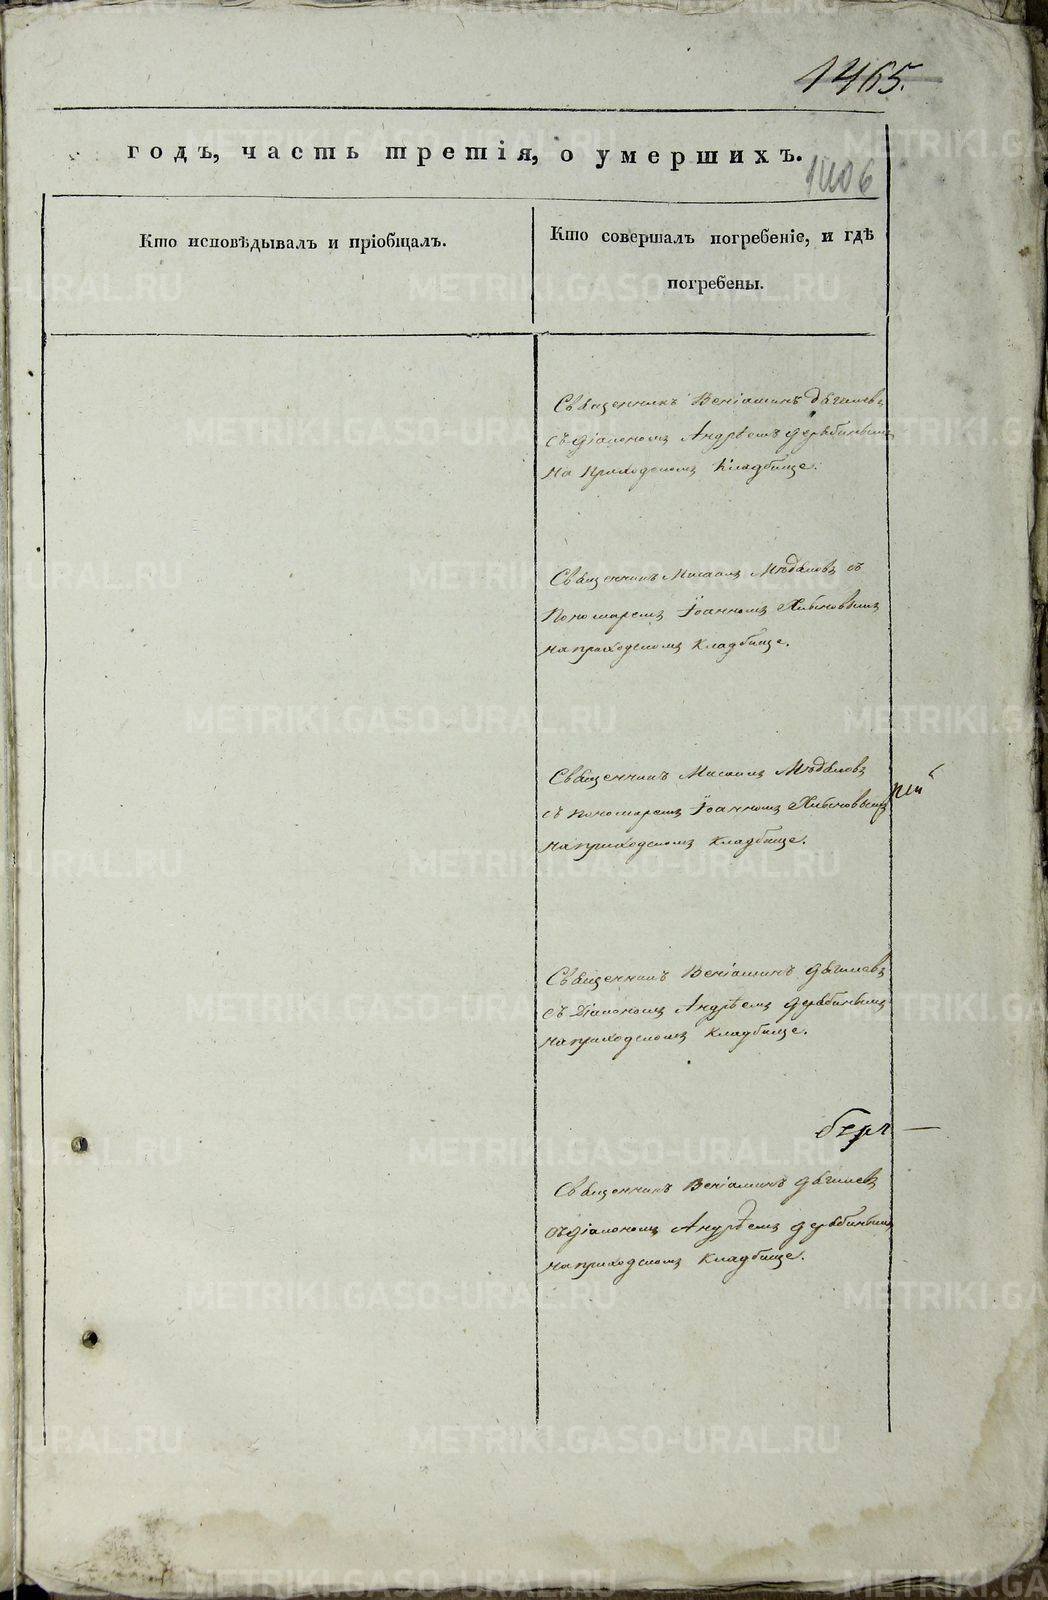 1465.
годъ, часть третія, о умершихъ.
1006
Кто исповѣдывалъ и пріобщалъ.
Кто совершалъ погребеніе, и гдѣ
погребены.
Священникъ Веніаминъ Дягилевъ
съ діакономъ Андреемъ Дерябинымъ
на приходскомъ кладбище.
Священникъ Мисаилъ Мѣдѣловъ съ
Пономаремъ Іоанномъ Хлыновымъ
на приходскомъ кладбище.
Священникъ Мисаилъ Мѣдѣловъ
съ пономаремъ Іоанномъ Хлыновымъ
на приходскомъ кладбище.
Священникъ Веніаминъ Дягилевъ
съ Діакономъ Андреемъ Дерябинымъ
на приходскомъ кладбище.
Священникъ Веніаминъ Дягилевъ
съ діакономъ Андреемъ Дерябинымъ
на приходскомъ кладбище.
METRIKI.GASO-URAL.RU